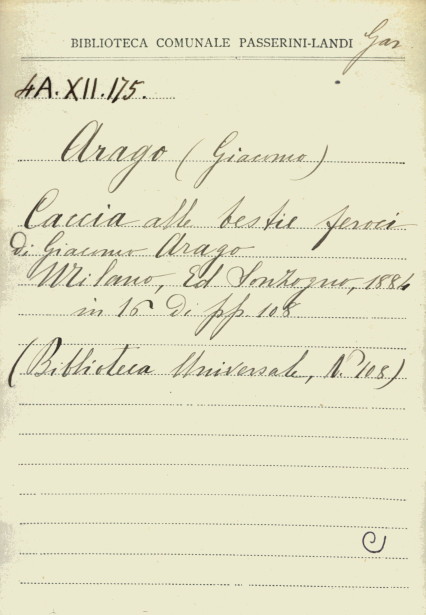 BIBLIOTECA COMUNALE PASSERINI-LANDI
Gar
4A.XII.175.
Arago (Giacomo)
Caccia alle bestie feroci
di Giacomo Arago
Milano, Ed Sonzogno, 1884
in 16 di pp 108
(Biblioteca Universale, N.° 108)
C